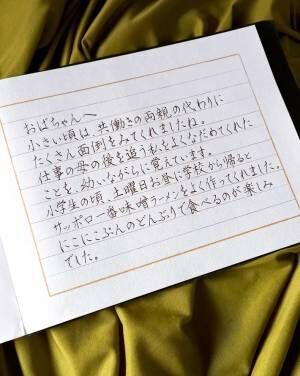 おばちゃんへ
小さい頃は 共働きの両親の代わりに
たくさん面倒をみてくれましたね。
仕事の母の後を追う私をよくなだめてくれた
ことを 幼いながらに覚えています。
小学生の頃 土曜日お昼に学校から帰ると
サッポロ一番味噌ラーメンをよく作ってくれました。
にこにこぷんのどんぶりで食べるのが楽しみ
でした。